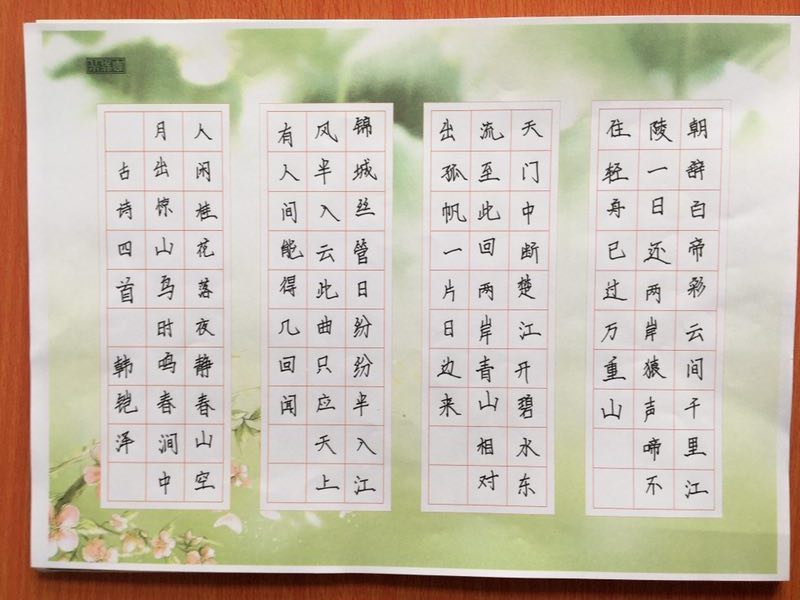 朝辞白帝彩云间千里江
陵一日还两岸猿声啼不
住轻舟已过万重山
天门中断楚江开碧水东
流至此回两岸青山相对
出孤帆一片日边来
锦城丝管日纷纷半入江
风半入云此曲只应天上
有人间能得几回闻
人闲桂花落夜静春山空
月出惊山鸟时鸣春涧中
古诗四首 韩铠泽